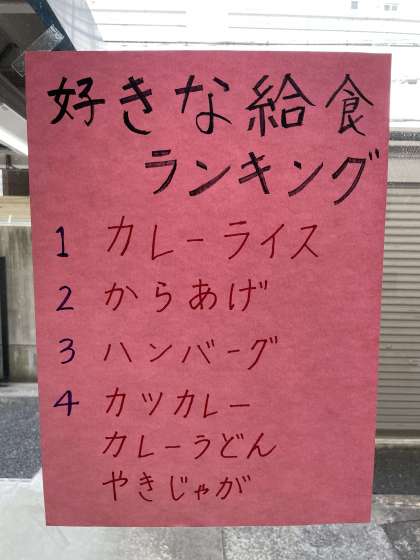 好きな給食
ランキング
1 カレーライス
2 からあげ
3 ハンバーグ
4 カツカレー
カレーうどん
やきじゃが